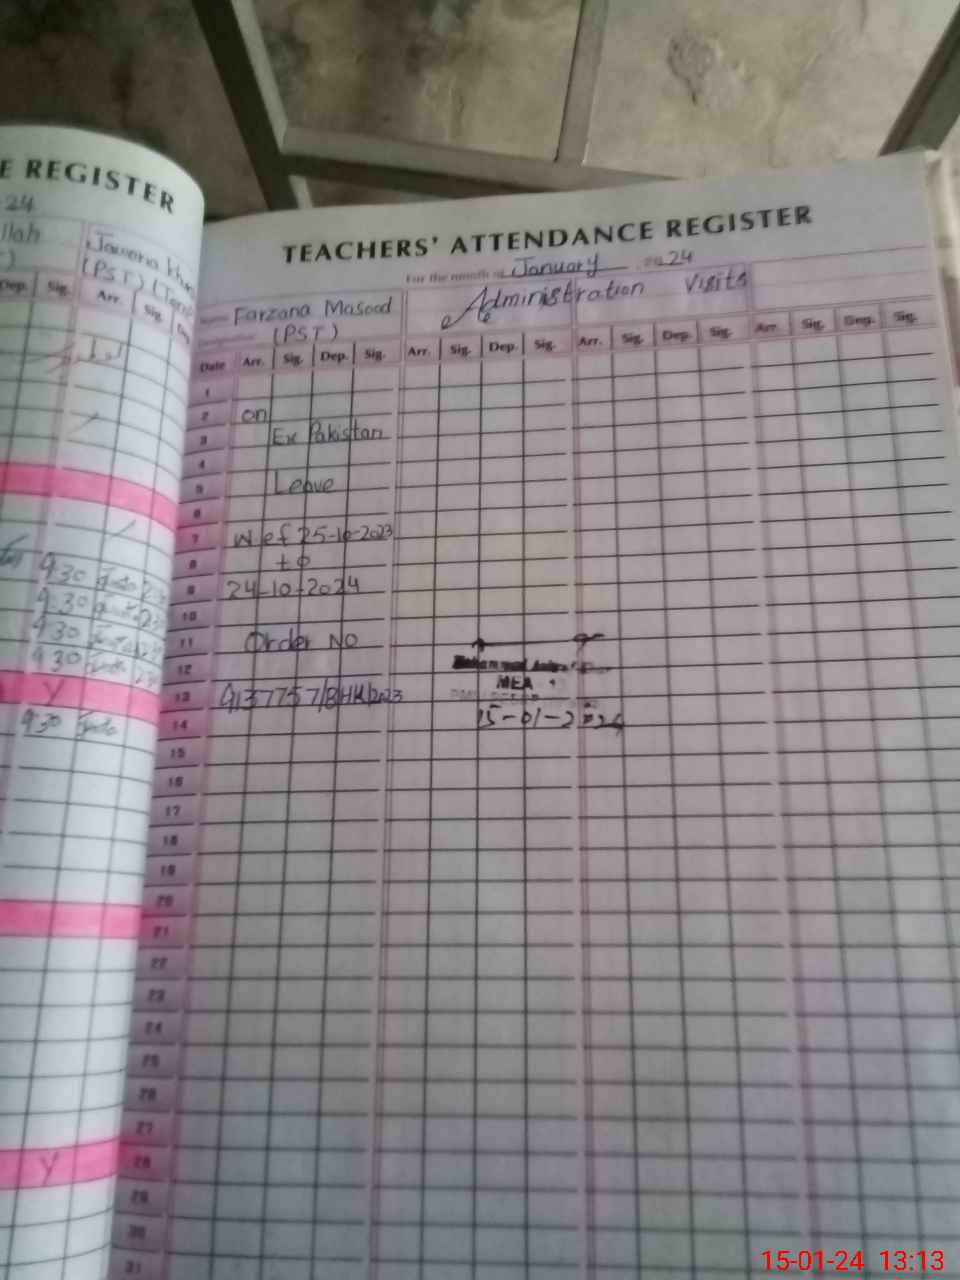 E REGISTER
24
llah
Jaweria Khan
(PST)
Dep. Sig. Arr. Sig.
9:30
9:30
9:30
9:30
Y
9:30
Y
TEACHERS' ATTENDANCE REGISTER
For the month of January 2024
Name Farzana Masood
(PST)
Administration Visits
Date Arr. Sig. Dep. Sig. Arr. Sig. Dep. Sig. Arr. Sig. Dep. Sig. Arr. Sig. Dep. Sig.
1
2 on
3 Ex Pakistan
4
5 Leave
6
7 w.e.f 25-10-2023
8 to
9 24-10-2024
10
11 Order No
12
MEA
13 9137757/BHU/2023
14 15-01-2024
15
16
17
18
19
20
21
22
23
24
25
26
27
28
29
30
31
15-01-24 13:13